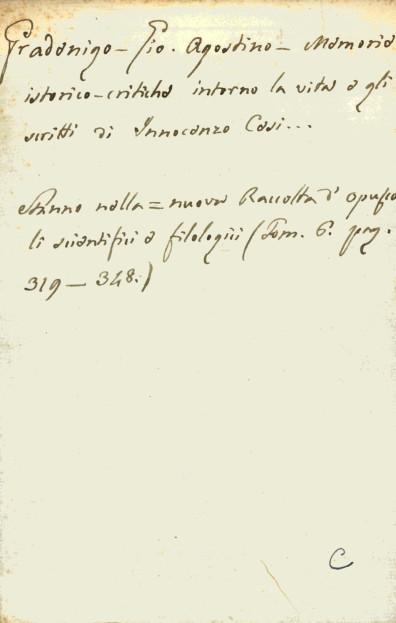 Gradenigo - Gio. Agostino - Memorie
istorico-critiche intorno la vita e gli
scritti di Innocenzo Casi...
Stanno nella = nuova Raccolta d' opusco
li scientifici e filologici (Tom. 6. pag.
319 - 348.)
C